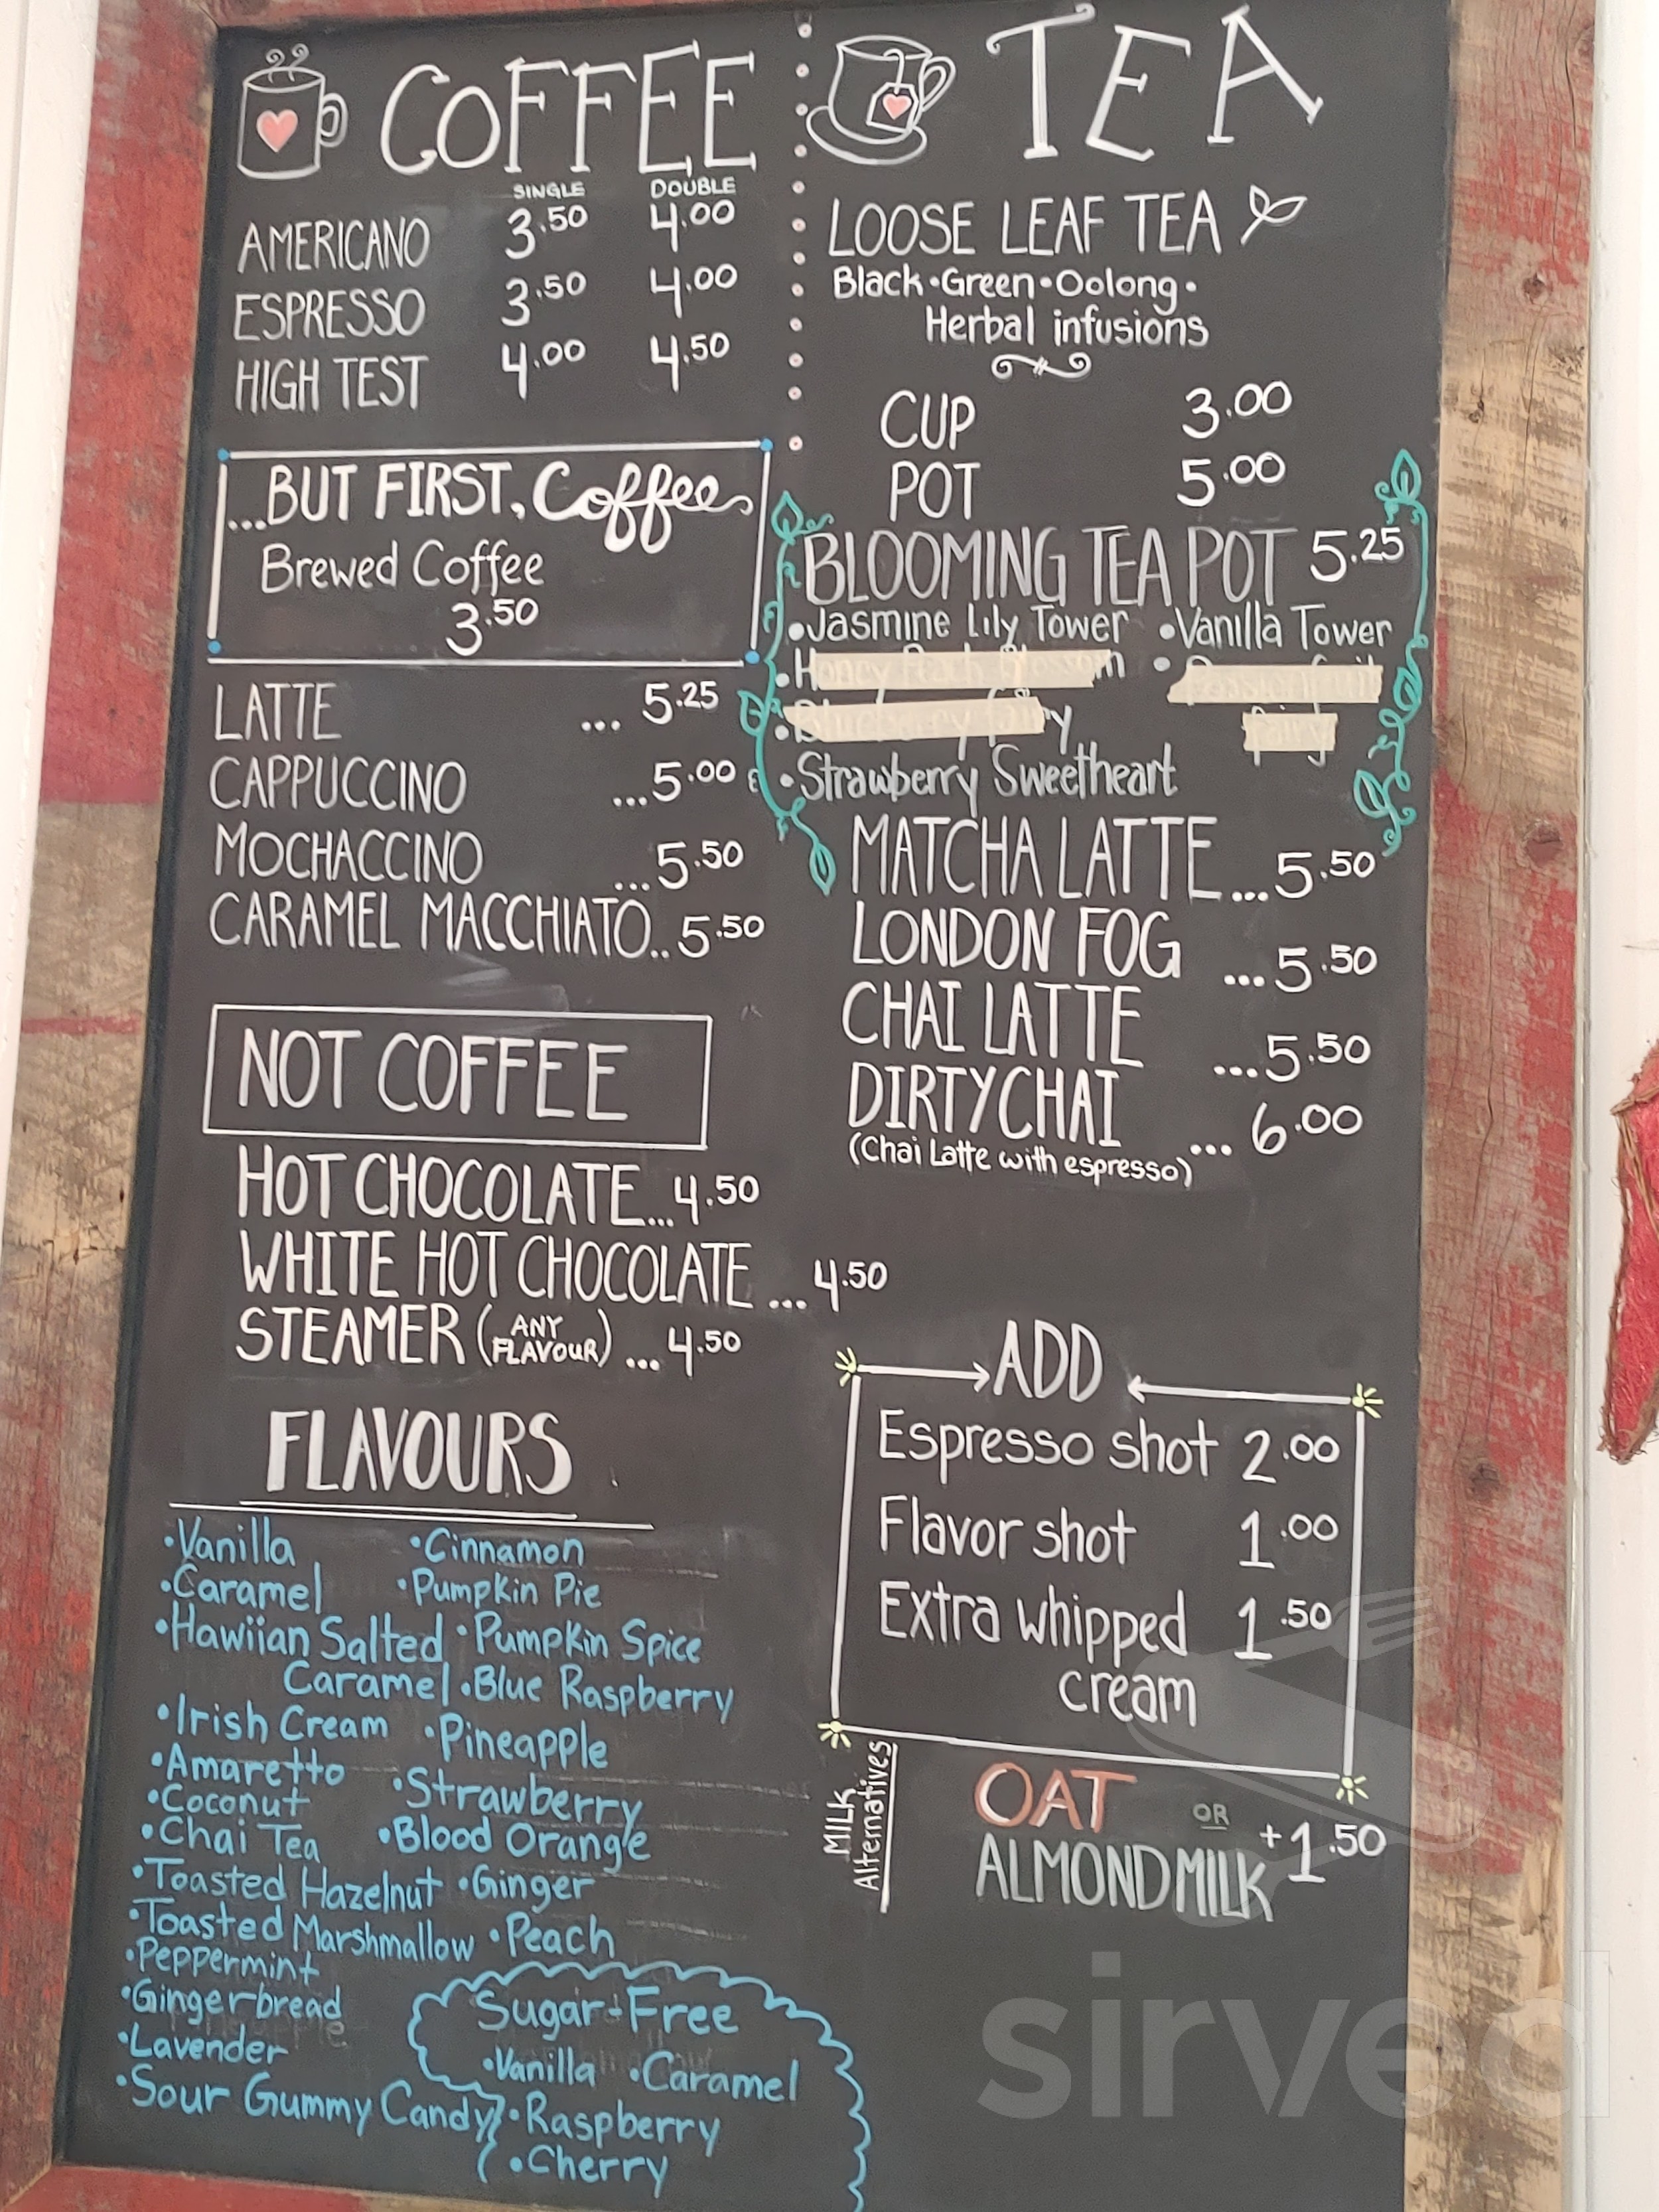 COFFEE
SINGLE DOUBLE
AMERICANO 3.50 4.00
ESPRESSO 3.50 4.00
HIGH TEST 4.00 4.50
...BUT FIRST, Coffee
Brewed Coffee
3.50
LATTE ... 5.25
CAPPUCCINO ...5.00
MOCHACCINO ...5.50
CARAMEL MACCHIATO..5.50
NOT COFFEE
HOT CHOCOLATE...4.50
WHITE HOT CHOCOLATE ...4.50
STEAMER (ANY FLAVOUR) ...4.50
FLAVOURS
•Vanilla •Cinnamon
•Caramel •Pumpkin Pie
•Hawiian Salted •Pumpkin Spice
Caramel •Blue Raspberry
•Irish Cream •Pineapple
•Amaretto •Strawberry
•Coconut
•Chai Tea •Blood Orange
•Toasted Hazelnut •Ginger
•Toasted Marshmallow •Peach
•Peppermint
•Gingerbread
•Lavender
•Sour Gummy Candy
Sugar-Free
•Vanilla •Caramel
•Raspberry
•Cherry
TEA
LOOSE LEAF TEA
Black•Green•Oolong•
Herbal infusions
CUP 3.00
POT 5.00
BLOOMING TEA POT 5.25
•Jasmine Lily Tower •Vanilla Tower
•Strawberry Sweetheart
MATCHA LATTE...5.50
LONDON FOG ...5.50
CHAI LATTE ...5.50
DIRTY CHAI ...6.00
(Chai Latte with espresso)
ADD
Espresso shot 2.00
Flavor shot 1.00
Extra whipped 1.50
cream
MILK
Alternatives
OAT OR
ALMONDMILK +1.50
sirved